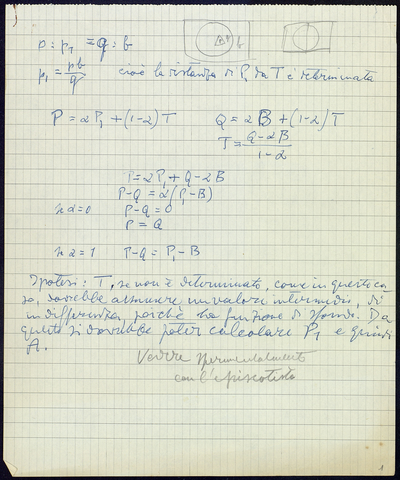 p : p₁ = q : b
p₁ = pb/q cioè la distanza di P₁ da T è determinata
P = αP₁ + (1-α) T Q = αB + (1-α) T
T = Q-αB / 1-α
P = αP₁ + Q - αB
P-Q = α(P₁-B)
se α=0 P-Q = 0
P = Q
se α = 1 P-Q = P₁-B
Ipotesi: T, se non è determinato, come in questo ca-
so, dovrebbe assumere un valore intermedio, di
indifferenza, perché ha funzione di sfondo. Da
questo si dovrebbe poter calcolare P₁ e quindi
A.
Vedere sperimentalmente
con l'episcotista
1